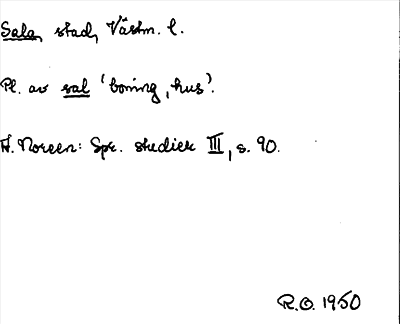 Sala, stad, Västm. l.
Pl. av sal 'boning, hus'.
A. Noreen: Spr. studier III, s. 90.
R.O. 1950